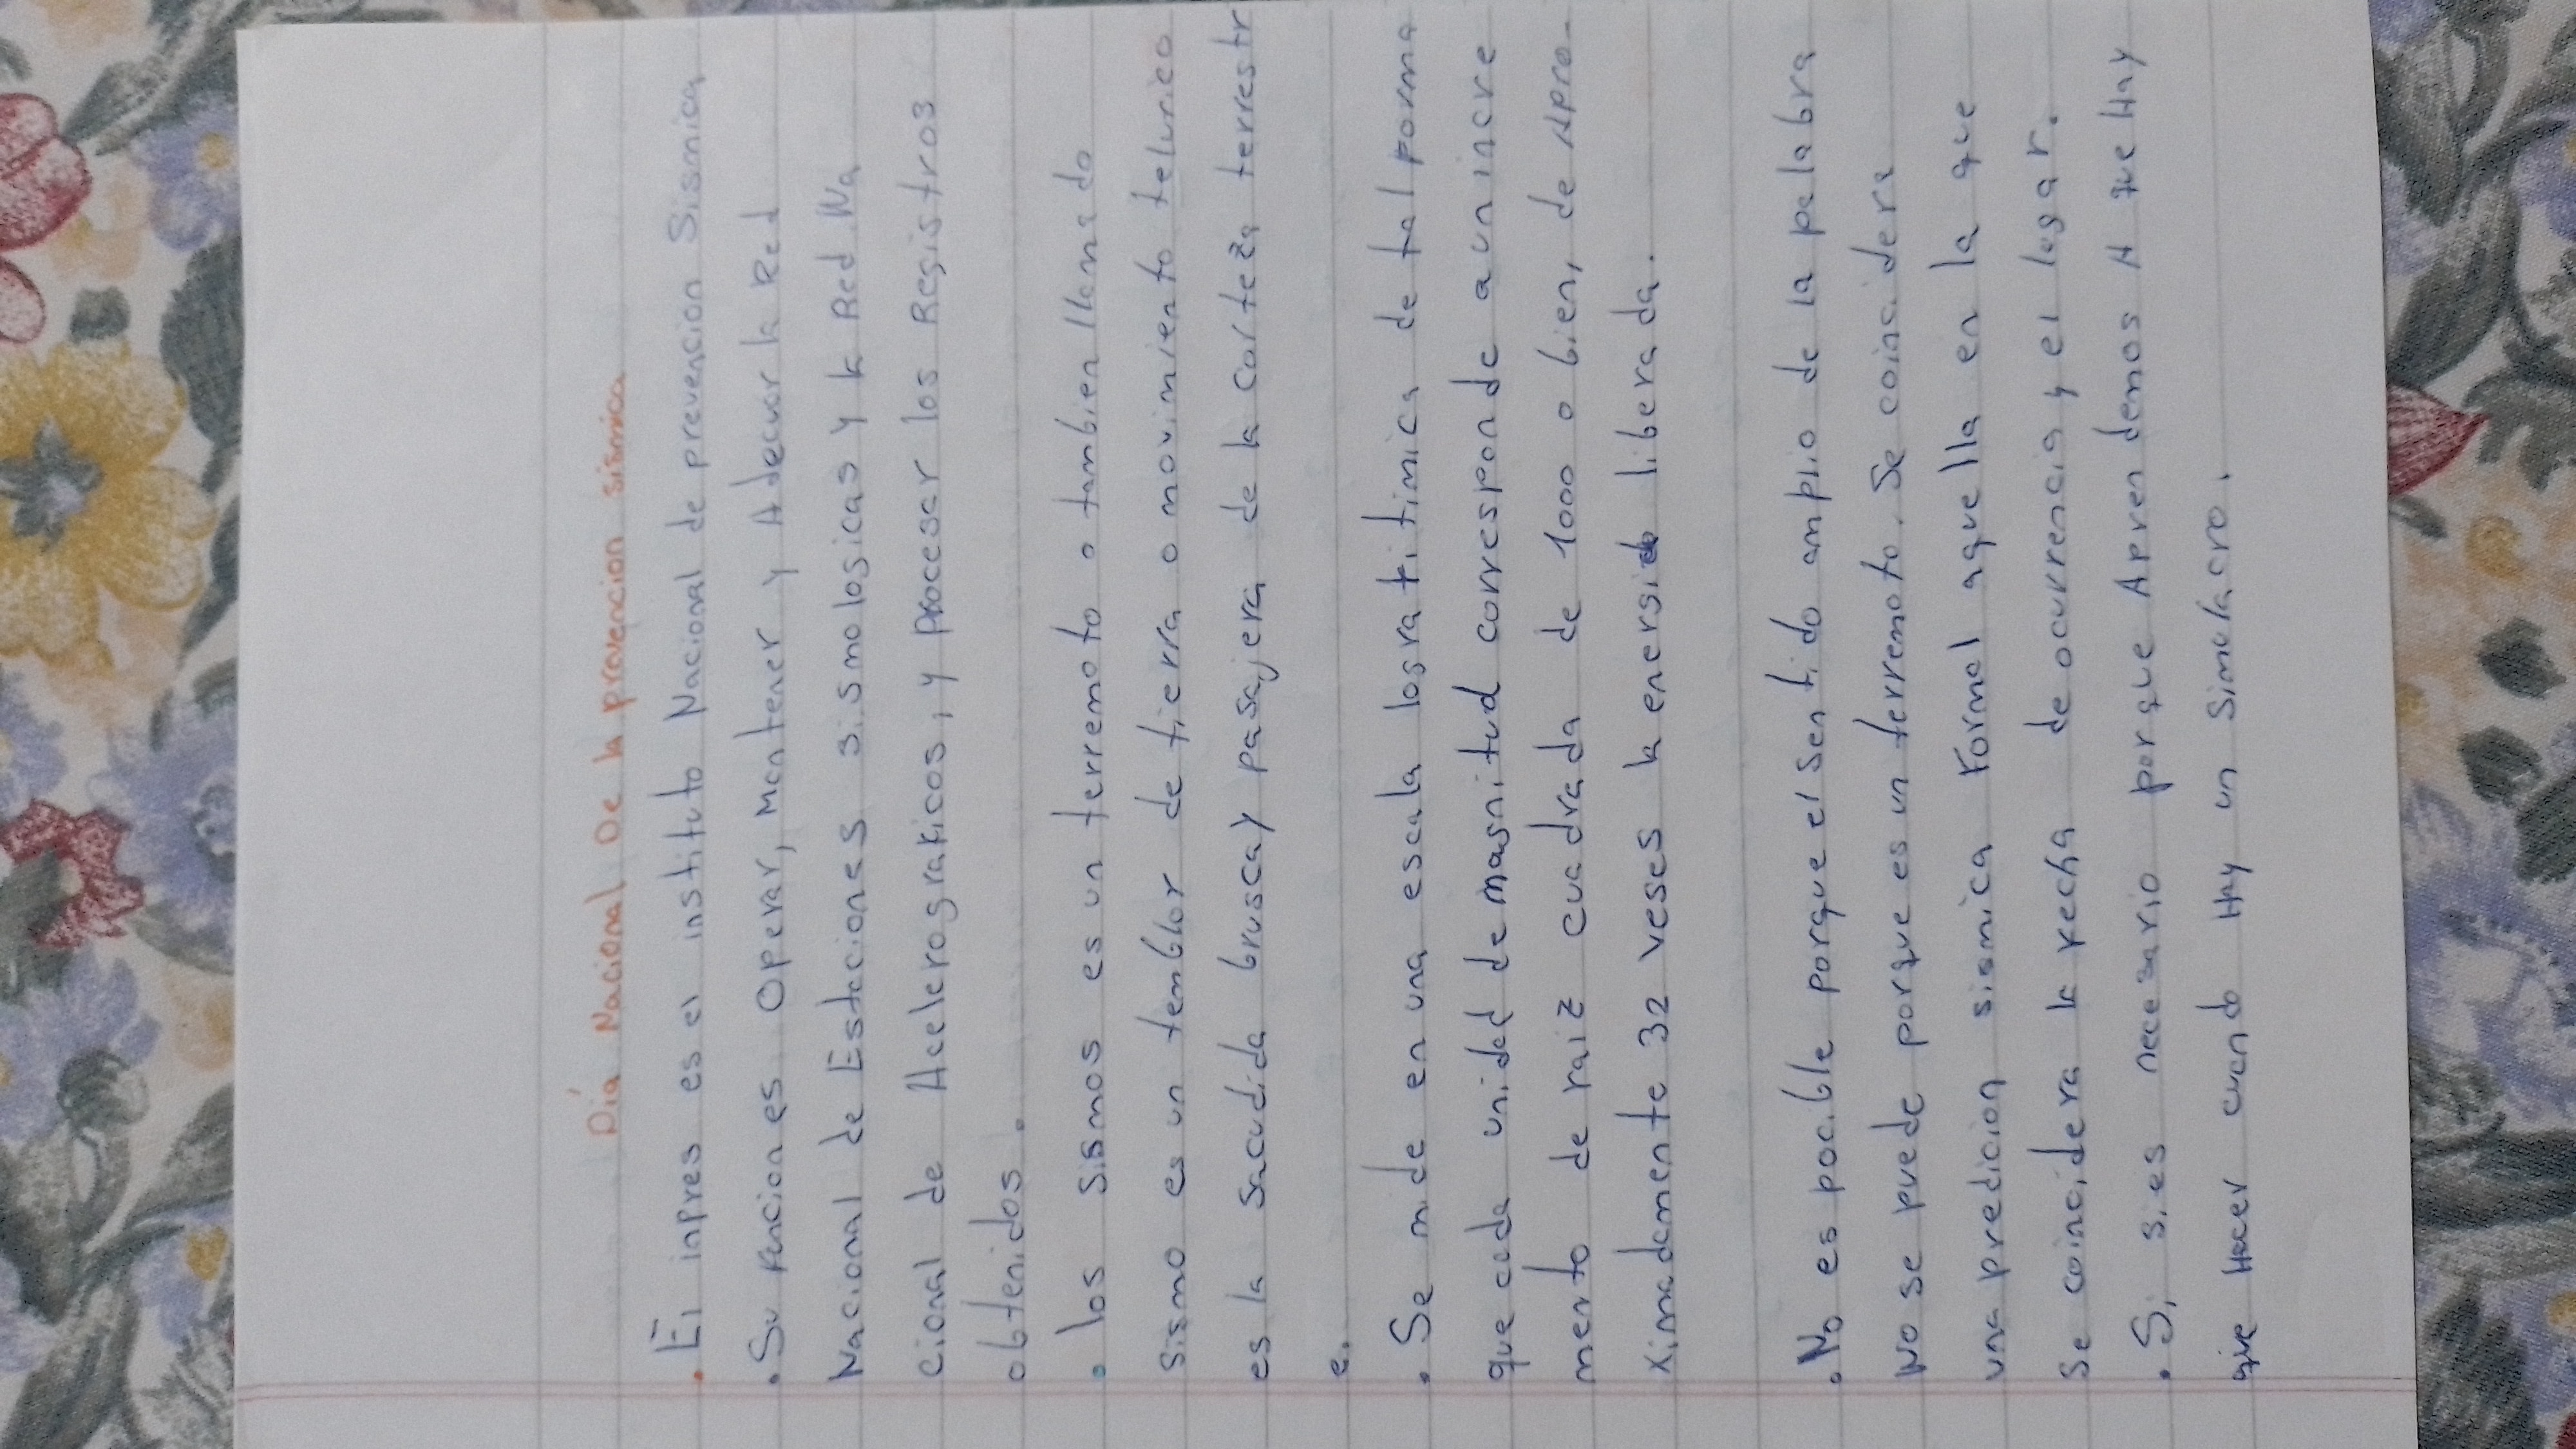 Día Nacional De la prevencion sismica
. El inpres es el instituto Nacional de prevencion Sismica
. Su funcion es Operar, Mantener y Adecuar la Red
Nacional de Estaciones sismologicas y la Red Na
cional de Acelerograficos, y procesar los Registros
obtenidos.
. los sismos es un terremoto o tambien llamado
sismo es un temblor de tierra o movimiento telurico
es la sacudida brusca y pasajera de la corteza terrestr
e.
. Se mide en una escala logratitimica de tal forma
que cada unidad de magnitud corresponde a un incre
mento de raiz cuadrada de 1000 o bien, de Apro-
ximadamente 32 veses la energia liberada.
. No es pocible porque el sentido amplio de la palabra
No se puede porque es un terremoto. Se coincidera
una predicion sismica formal aquella en la que
se coincidera la fecha de ocurrencia y el lugar.
. Si, si es necesario porque Aprendemos A que Hay
que Hacer cuando Hay un simulacro.